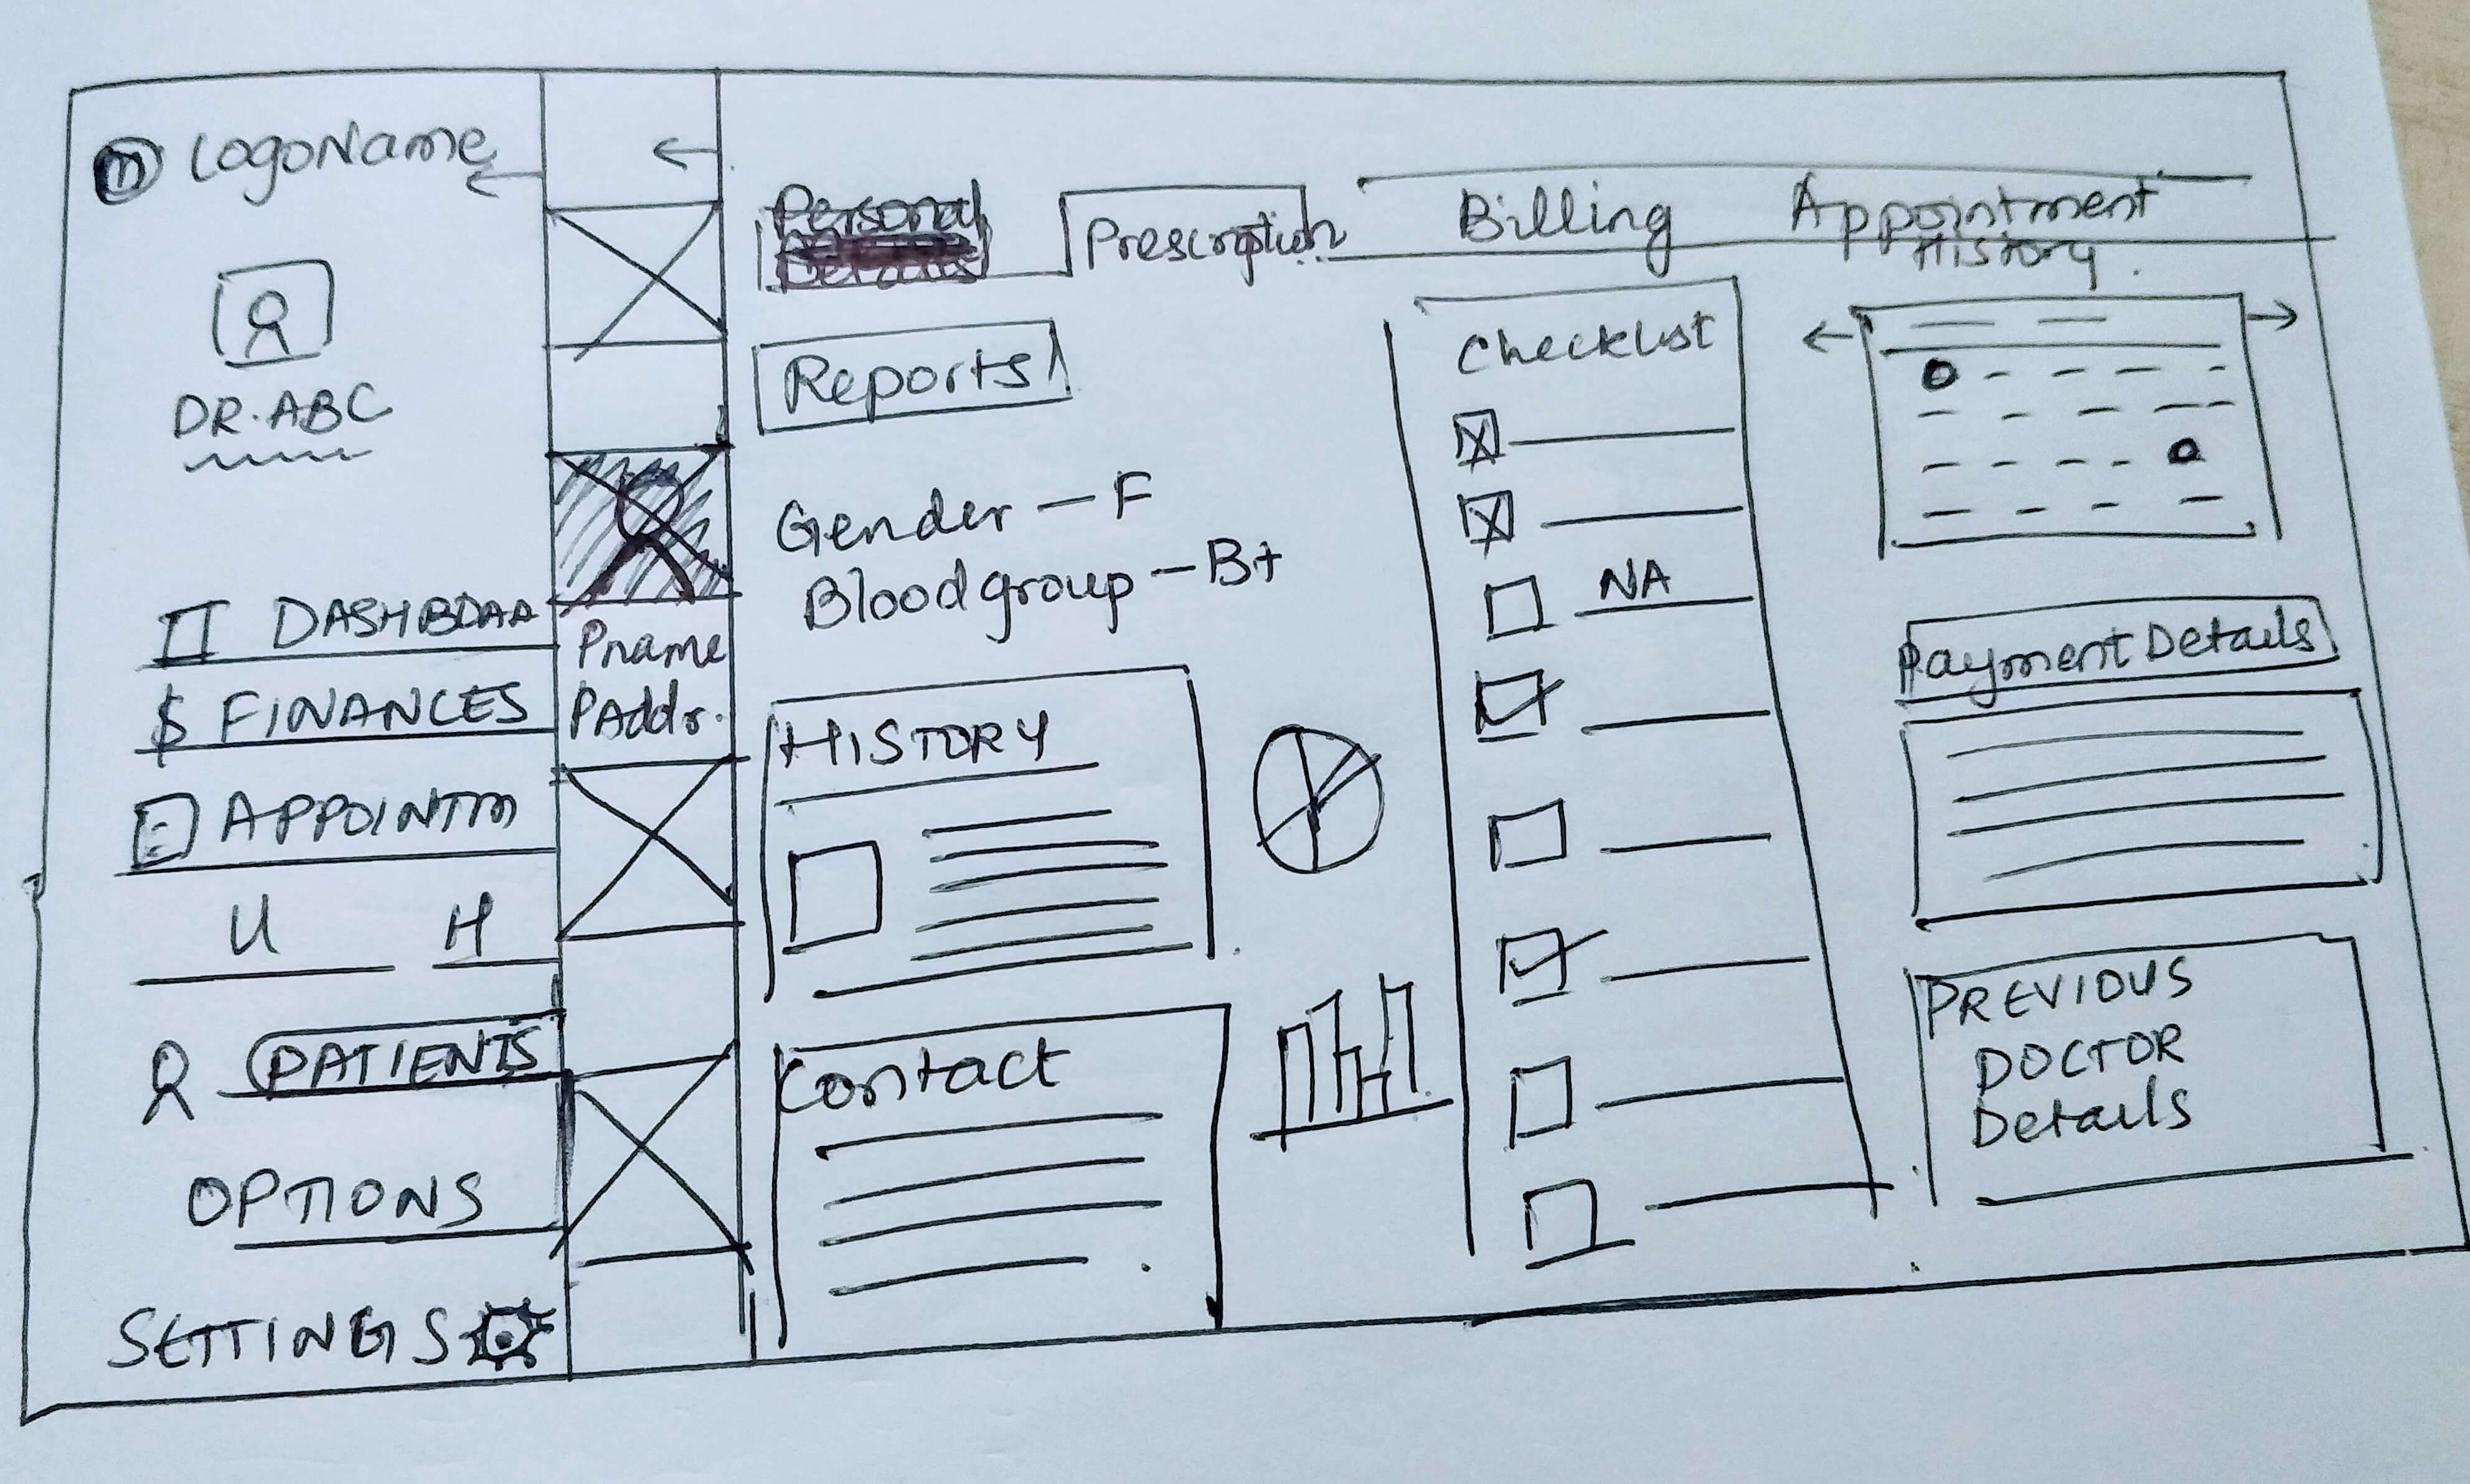 m LogoName
DR. ABC
DASHBOAA
$ FINANCES
APPOINTM
U H
PATIENTS
OPTIONS
SETTINGS
Pname
PAddr.
Personal
Details
Prescription
Billing
Appointment
History.
Reports
Gender - F
Blood group - B+
HISTORY
Contact
Checklist
NA
Payment Details
PREVIOUS
DOCTOR
Details